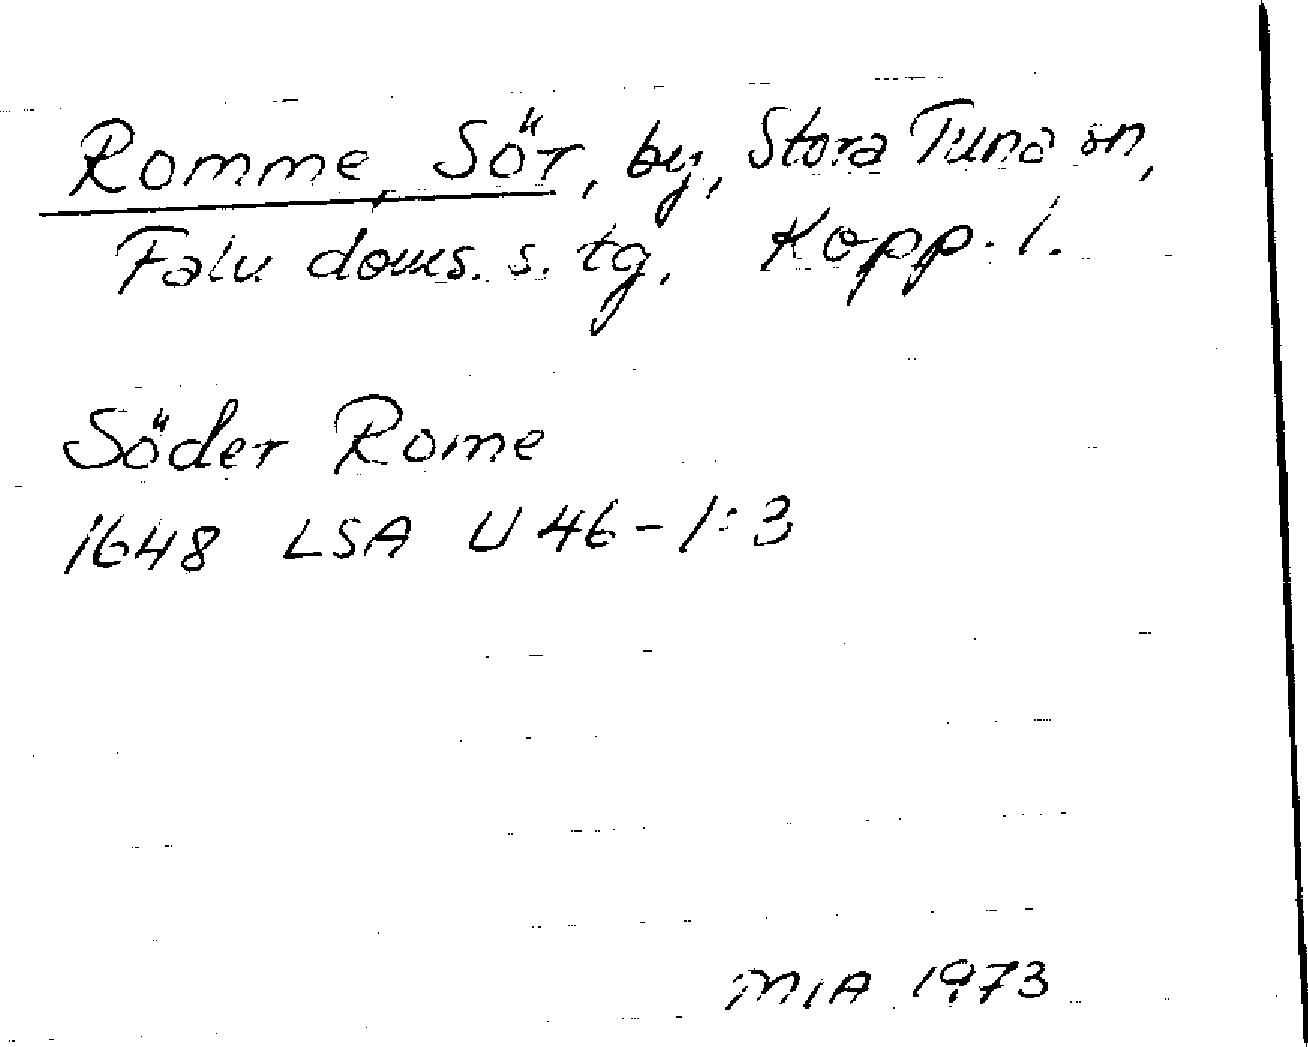 Romme, Sör, by, Stora Tuna sn,
Falu doms. s. tg, Kopp. l.
Söder Rome
1648 LSA U 46-1:3
MIA 1973